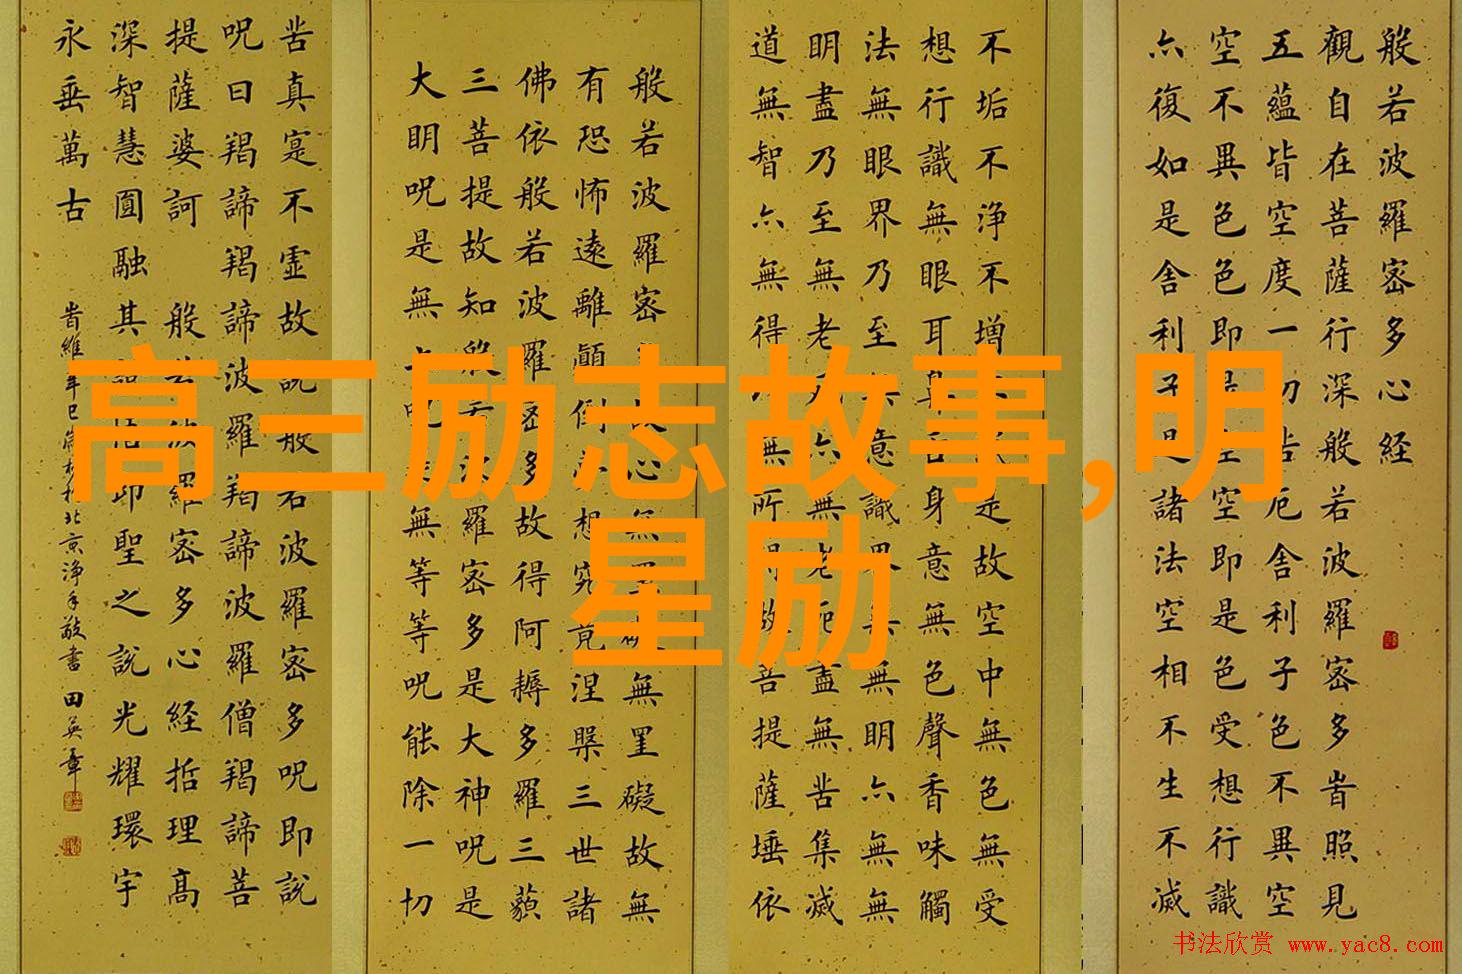 高三励志故事,明
星励
般若波羅密多心経
觀自在菩薩行深般若波羅密多峕照見
五蘊皆空度一切苦厄舍利子色不異空
空不異色色即是空空即是色受想行識
亦復如是舍利子是諸法空相不生不滅
不垢不浄不增不是故空中無色無受
想行識無眼耳鼻舌身意無色聲香味觸
法無眼界乃至無意識界無無明亦無無
明盡乃至無老死亦無老死盡無苦集滅
道無智亦無得無所得故菩提薩埵依
般若波羅密多故心無罣礙無罣礙故無
有恐怖遠離顛倒夢想究竟涅槃三世諸
佛依般若波羅密多故得阿耨多羅三藐
三菩提故知般若波羅密多是大神呪是
大明呪是無上呪是無等等呪能除一切
苦真寔不虛故説般若波羅密多呪即説
呪曰羯諦羯諦波羅羯諦波羅僧羯諦菩
提薩婆訶 般若波羅密多心経括理高
深智慧圓融其悟印聖之説光耀環宇
永垂萬古
峕維年巳北京浄手敬書 田英章
书法欣赏 www.yac8.com